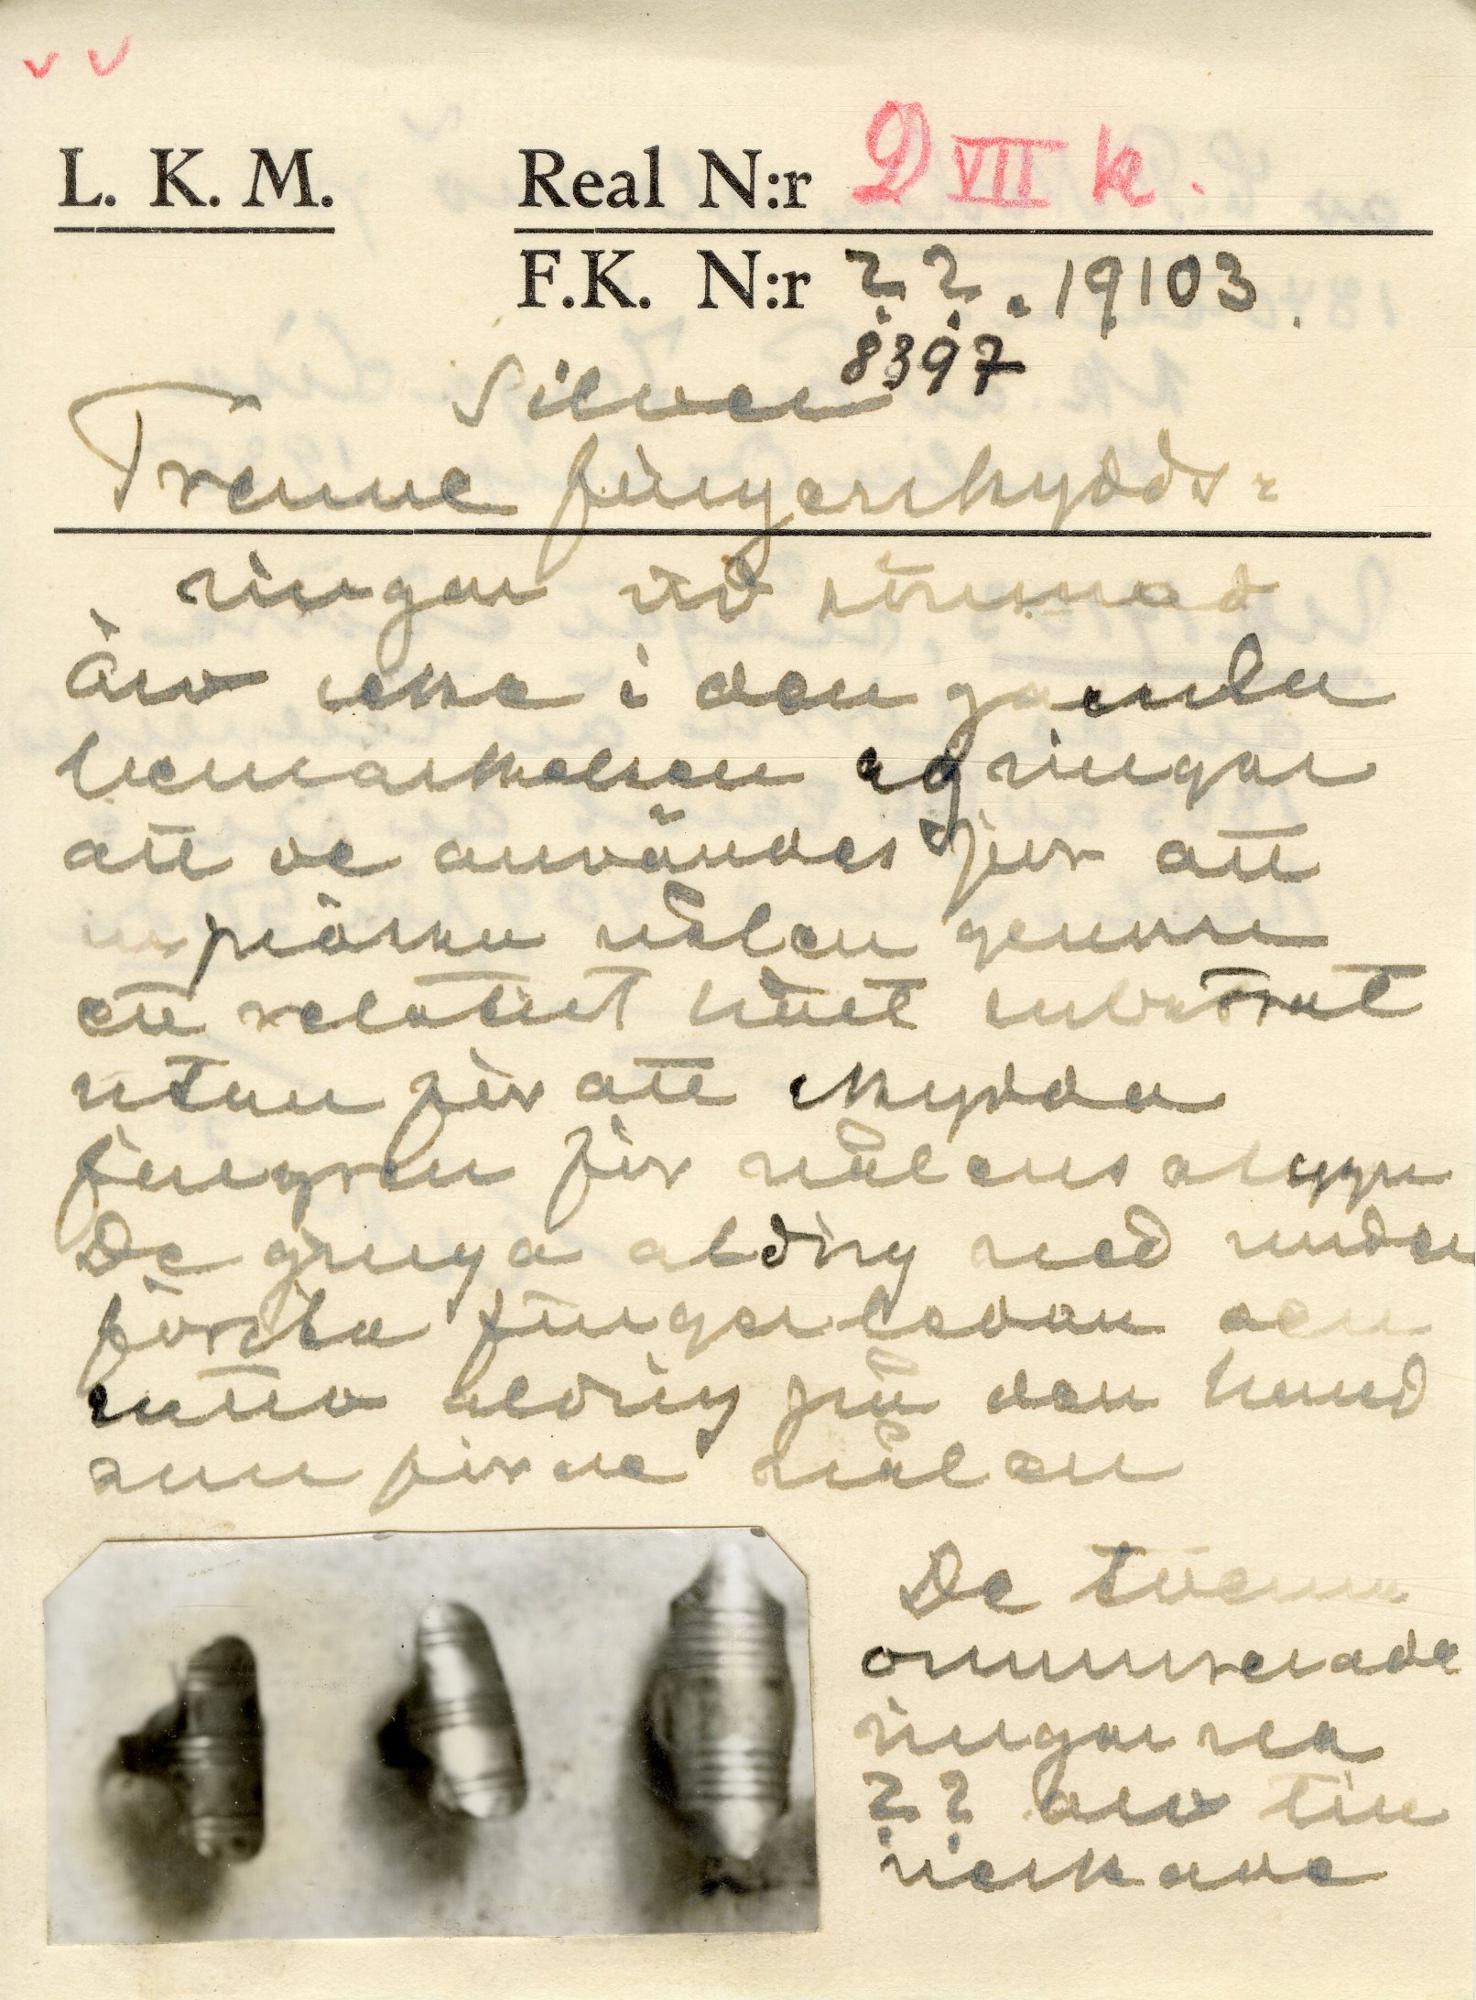 L. K. M. Real N:r D VII k.
F.K. N:r ??. 19103.
8397
Silver
Trenne fingerskydds-
ringar vid sömnad
Äro icke i den gamla
bemärkelsen syringar
att de användes för att
pårska nålen genom
ett relativt hårt substrat
utan för att skydda
fingren för nålens stygn
De gingo aldrig ned under
första fingerleden och
sutto aldrig på den hand
som förde nålen
De tvenne
onumrerade
ringar na
?? äro till
verkade